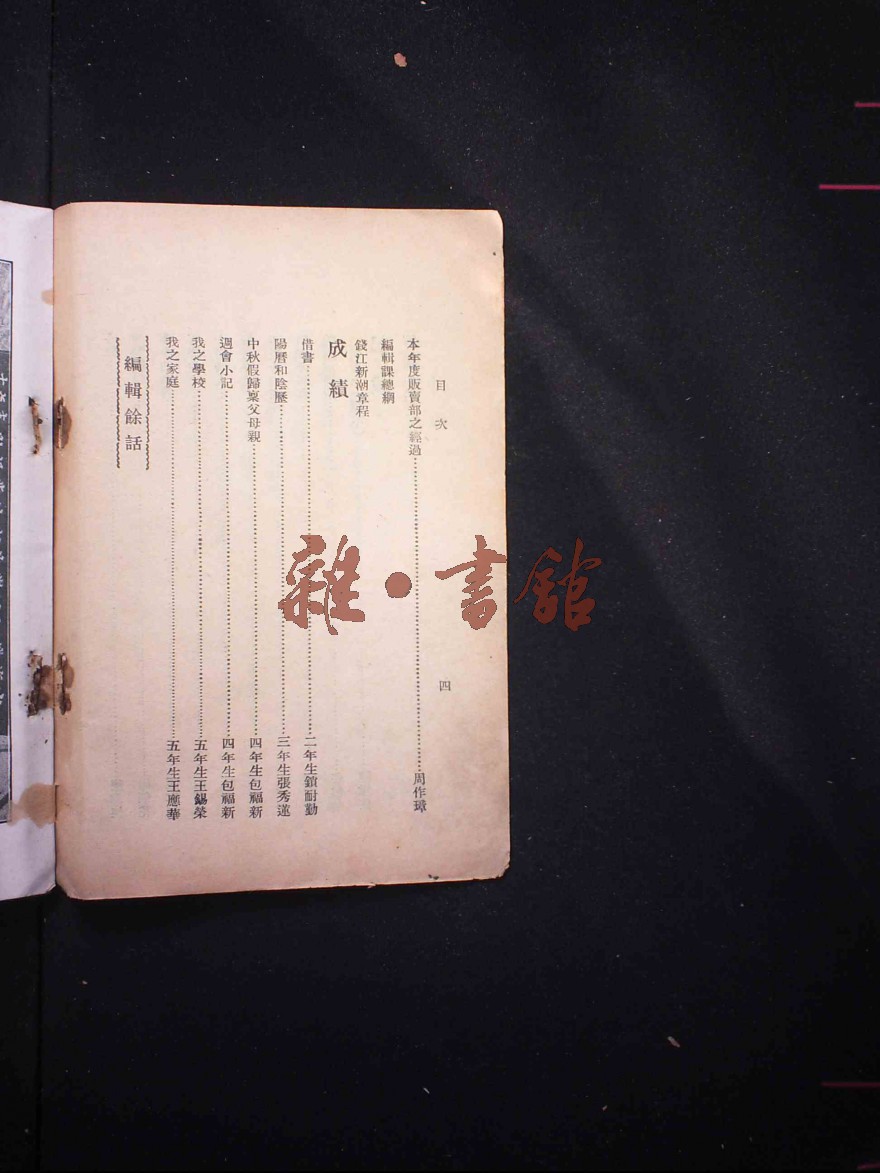 目次
四
本年度販賣部之經過……周作璋
編輯課總綱
錢江新潮章程
成績
借書……二年生鎖耐勤
陽曆和陰歷……三年生張秀蓮
中秋假歸稟父母親……四年生包福新
週會小記……四年生包福新
我之學校……五年生王錫榮
我之家庭……五年生王應華
編輯餘話
雜·書舘